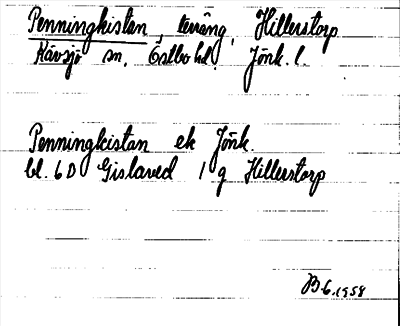 Penningkistan, terräng, Hillerstorp
Kävsjö sn, Östbo hd. Jönk. l.
Penningkistan ek Jönk.
bl. 6D Gislaved 1 g Hillerstorp
B 6.1958